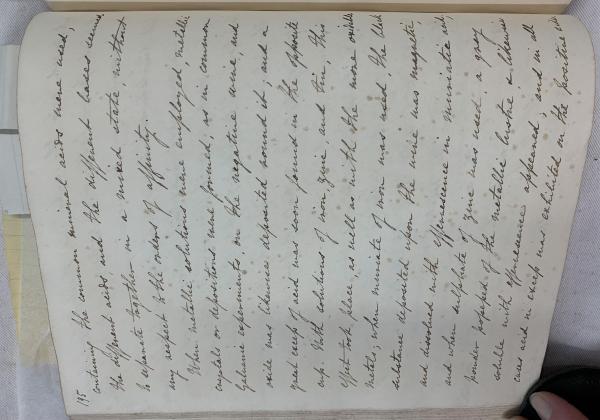 195
containing the common mineral acids were used,
the different acids and the different bases seemed
to separate together in a mixed state, without
any respect to the orders of affinity.
When metallic solutions were employed, metallic
crystals or depositions were formed, as in common
Galvanic experiments, on the negative wire, and
oxide was likewise deposited around it and a
great excess of acid was soon found in the opposite
cup. With solutions of iron, zinc, and tin, this
effect took place, as well as with the more oxidable
metals; when muriate of iron was used, the black
substance deposited upon the wire was magnetic
and dissolved with effervescence in muriatic acid,
and when sulphate of zinc was used a gray
powder possessed of the metallic lustre & likewise
soluble with effervescence appeared, and in all
cases acid in excess was exhibited on the positive side